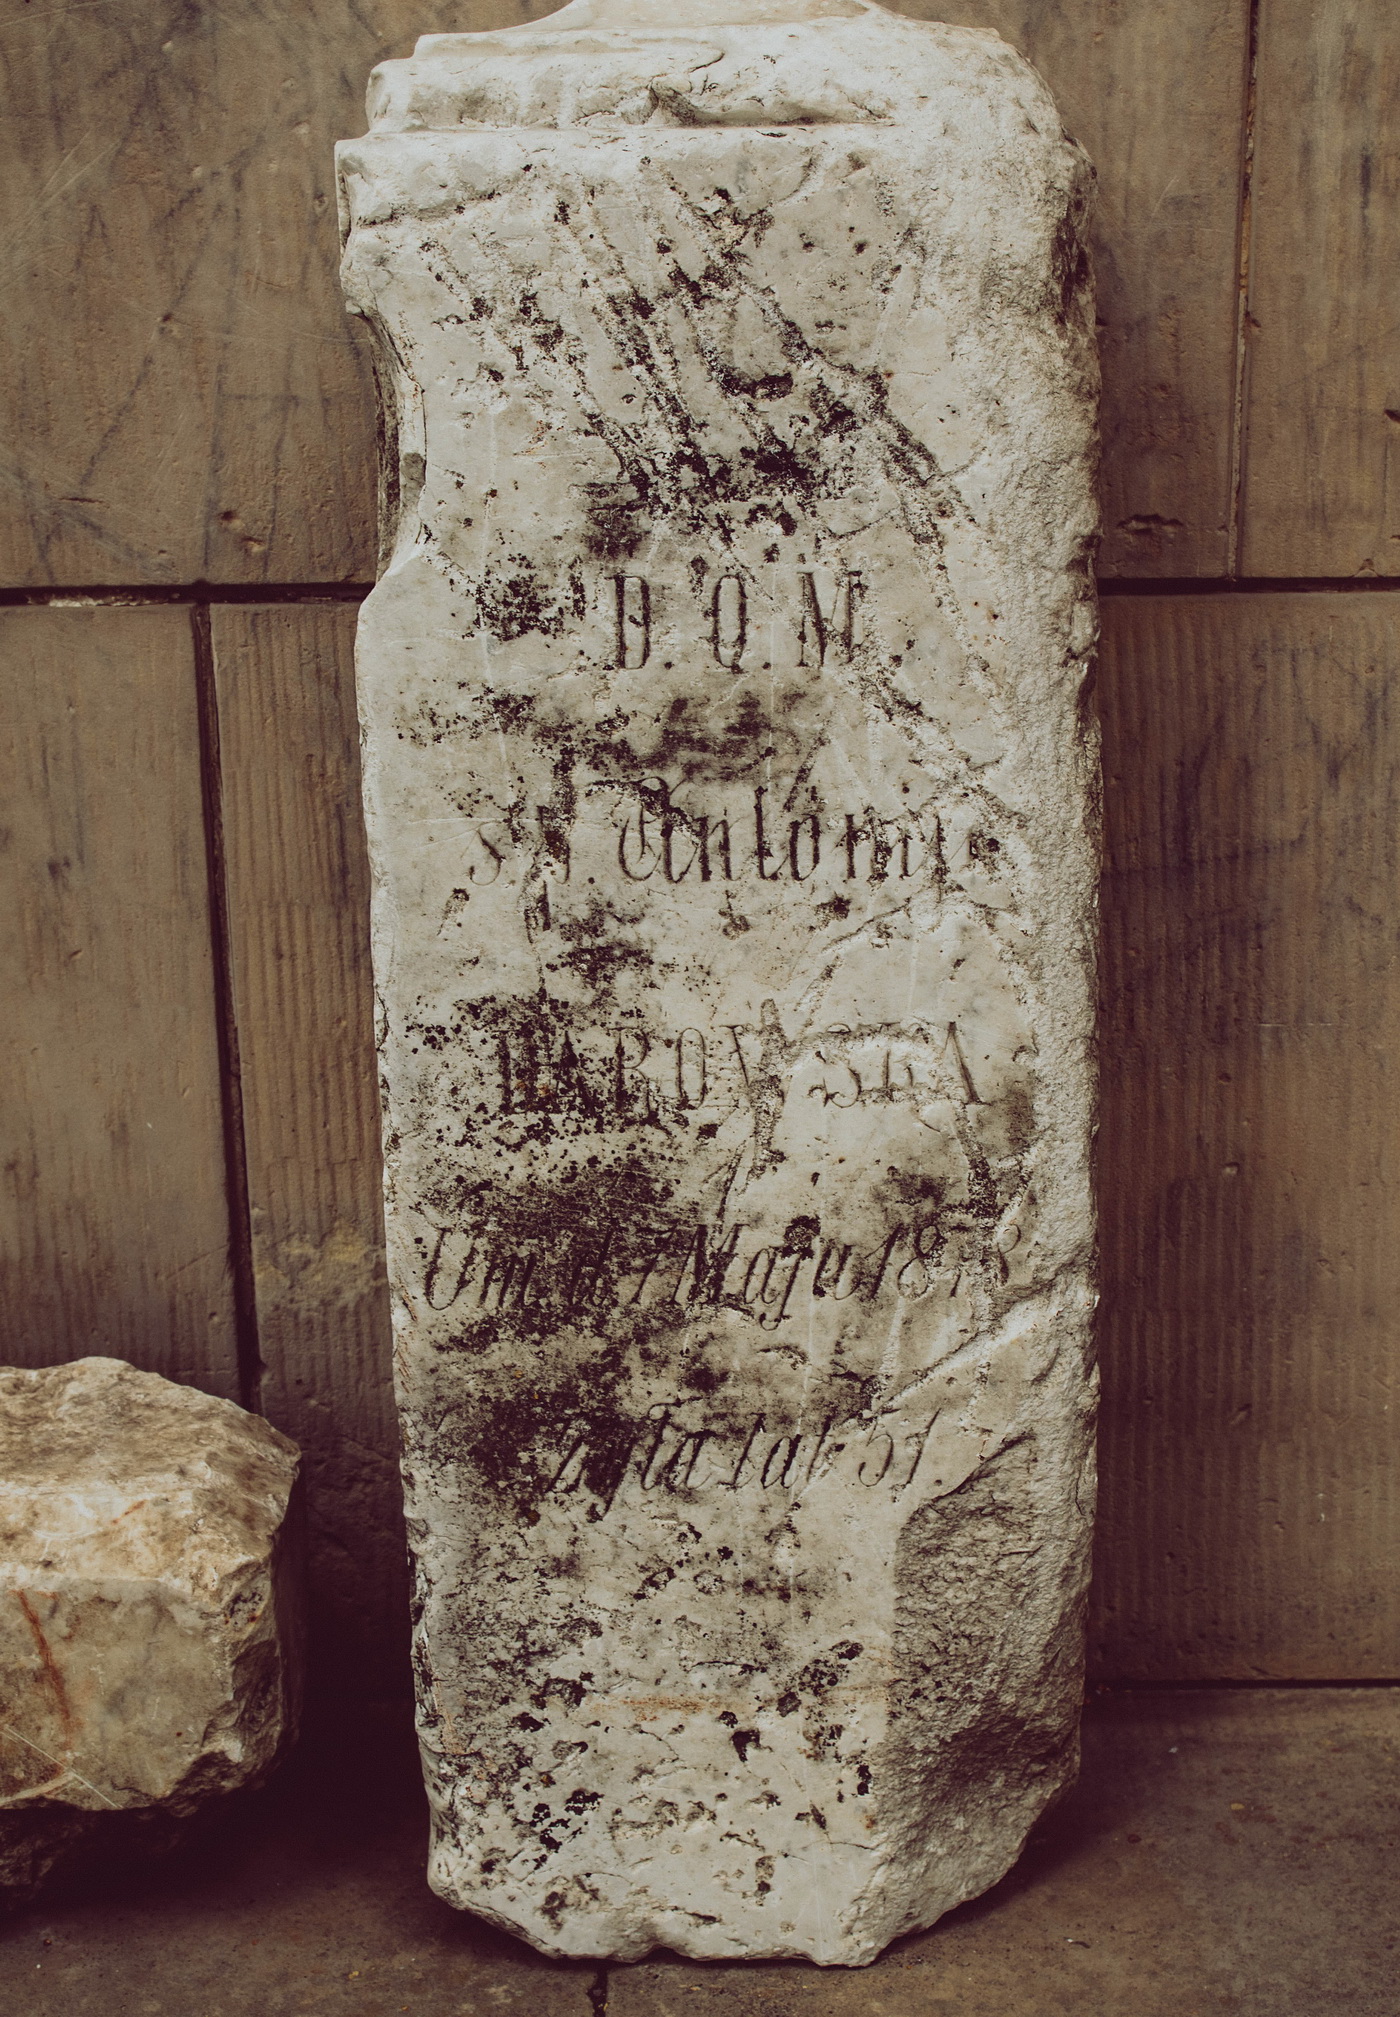 D.O.M
Ś.P. Antonina
DAROWSKA
Um. d. 7 Maja 1878
żyła lat 51